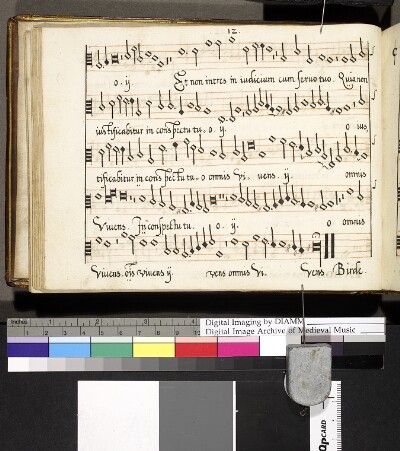 12.
o . ij. Et non intres in iudicium cum seruo tuo. Quia non
iustificabitur in conspectu tu. o. ij. o ius,
tificabitur in conspectu tu. o omnis vi. uens. ij. omnis
Viuens. In conspectu tu. o. ij. o omnis
viuens. ois viuens ij vens omnis vi. vens. Birde.
inches 1 2 3
Digital Imaging by DIAMM
Digital Image Archive of Medieval Music